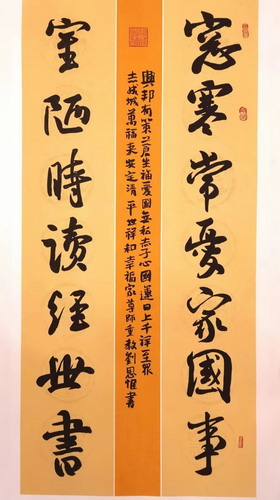 窓寒常憂家國事
興邦有策蒼生福愛國無私赤子心國運日上千祥至眾
志成城萬福來安定清平世祥和幸福家尊師重教劉恩惟書
室陋時讀經世書